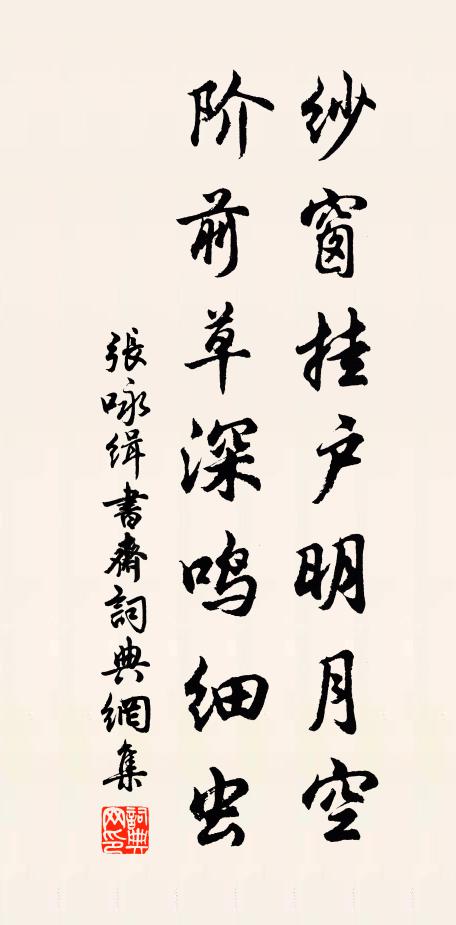 纱窗挂户明月空
阶前草深鸣细虫
張咏缉書齋詞典網集
詞典网印